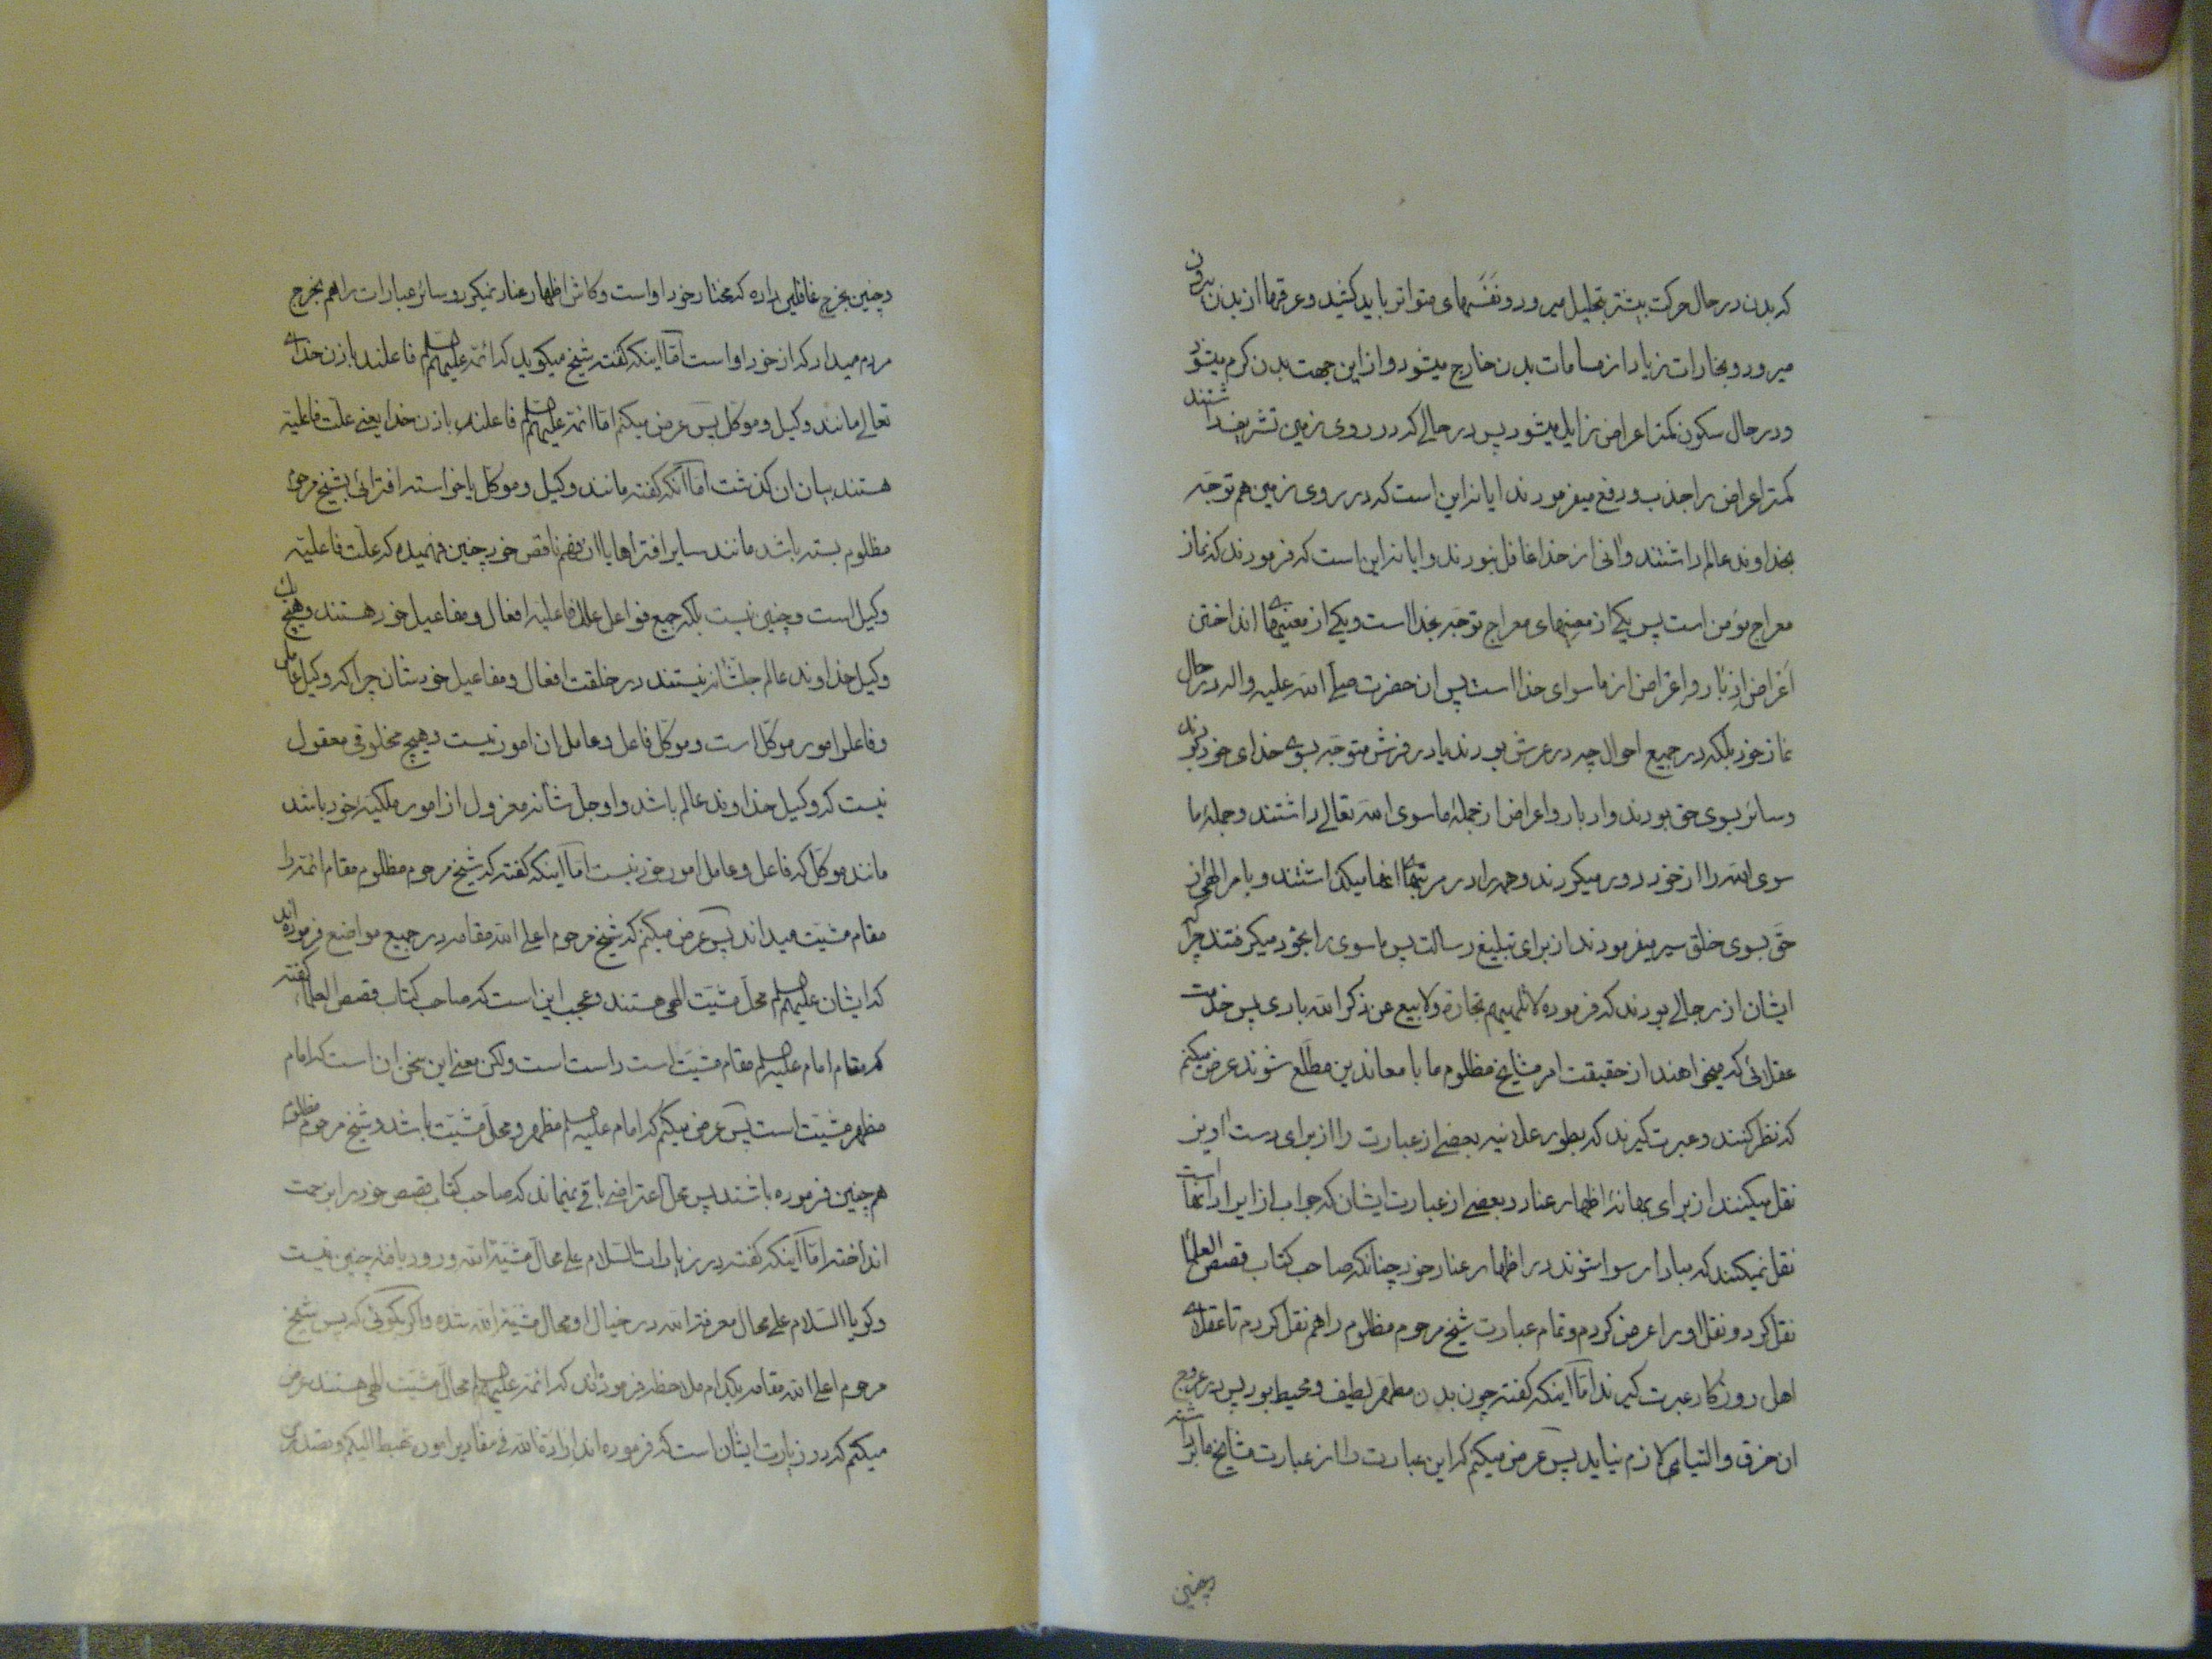 که بدن در حال حرکت بیشتر بتحلیل میرود و نفسهای متواتر باید کشید و عرقها از بدن بیرون
میرود و بخارات زیاد از مسامات بدن خارج میشود و از این جهت بدن گرم میشود
و در حال سکون کمتر اعراض زایل میشود پس در حالی که در روی زمین تشریف داشتند
کمتر اعراض را جذب و دفع میفرمودند ایا نه این است که در روی زمین هم توجه
بخداوند عالم داشتند و انی از خدا غافل نبودند و ایا نه این است که فرمودند که نماز
معراج مؤمن است پس یکی از معنیهای معراج توجه بخدا است و یکی از معنیها انداختن
اعراض ادبار و اعراض از ماسوای خدا است پس ان حضرت صلی الله علیه و اله در حال
نماز خود بلکه در جمیع احوال چه در عرش بودند یا در فرش متوجه بسوی خدای خود بودند
و سائر بسوی حق بودند و ادبار و اعراض از جمله ماسوی الله تعالی داشتند و جمله ما
سوی الله را از خود دور میکردند و همه را در مرتبهای انها میگذاشتند و با مر الهی از
حق بسوی خلق سیر میفرمودند از برای تبلیغ رسالت پس ماسوی را بخود میگرفتند چرا که
ایشان از رجالی بودند که فرموده لا تلهیهم تجارة ولا بیع عن ذکر الله باری پس خدمت
عقلائی که میخواهند از حقیقت امر مشایخ مظلوم ما با معاندین مطلع شوند عرض میکنم
که نظر کنند و عبرت گیرند که بطور علانیه بعضی از عبارت را از برای دست اویز
نقل میکنند از برای بهانهٔ اظهار عناد و بعضی از عبارت ایشان که جواب از ایراد انها است
نقل نمیکنند که مبادا رسوا شوند در اظهار عناد خود چنانکه صاحب کتاب قصص العلماء
نقل کرد و نقل او را عرض کردم و تمام عبارت شیخ مرحوم مظلوم را هم نقل کردم تا عقلای
اهل روزگار عبرت گیرند اما اینکه گفته چون بدن مطهر لطیف و محیط بود پس در عروج
ان خرق و التیامی لازم نیاید پس عرض میکنم که این عبارت را از عبارت مشایخ ما برداشته
و چنین بخرج غافلین داده که مختار خود او است و کاش اظهار عناد نمیکرد و سائر عبارات را هم بخرج
مردم میداد که از خود او است اما اینکه گفته شیخ میگوید که ائمه علیهم السلم فاعلند باذن خدای
تعالی مانند وکیل و موکل پس عرض میکنم اما ائمه علیهم السلم فاعلند باذن خدا یعنی علت فاعلیه
هستند بیان ان گذشت اما انکه گفته مانند وکیل و موکل یا خواسته افترائی بشیخ مرحوم
مظلوم بسته باشد مانند سایر افتراها یا ان فهم ناقص خود چنین فهمیده که علت فاعلیه
وکیل است و چنین نیست بلکه جمیع فواعل علل فاعلیه افعال و مفاعیل خود هستند و هیچ یک
وکیل خداوند عالم جل شانه نیستند در خلقت افعال و مفاعیل خودشان چرا که وکیل عامل
و فاعل امور موکل است و موکل فاعل و عامل ان امور نیست و هیچ مخلوقی معقول
نیست که وکیل خداوند عالم باشد و او جل شأنه معزول از امور ملکیهٔ خود باشد
مانند موکل که فاعل و عامل امور خود نیست اما اینکه گفته که شیخ مرحوم مظلوم مقام ائمه را
مقام مشیت میداند پس عرض میکنم که شیخ مرحوم اعلی الله مقامه در جمیع مواضع فرموده اند
که ایشان علیهم السلم محل مشیت الهی هستند و عجب این است که صاحب کتاب قصص العلماء گفته
که مقام امام علیه السلم مقام مشیت است راست است ولکن معنی این سخن ان است که امام
مظهر مشیت است پس عرض میکنم که امام علیه السلم مظهر و محل مشیت باشد و شیخ مرحوم مظلوم
هم چنین فرموده باشند پس محل اعتراضی باقی نمیماند که صاحب کتاب قصص خود را بزحمت
انداخته اما اینکه گفته در زیارات السلام علی محال مشیة الله ورود یافته چنین نیست
و گویا السلام علی محال معرفة الله در خیال او محال مشیة الله شده و اگر بگوئی که پس شیخ
مرحوم اعلی الله مقامه بکدام ملاحظه فرموده اند که ائمه علیهم السلم محال مشیت الهی هستند عرض
میکنم که در زیارت ایشان است که فرموده اند ارادة الله فی مقادیر اموره تهبط الیکم و تصدر من
وچنین